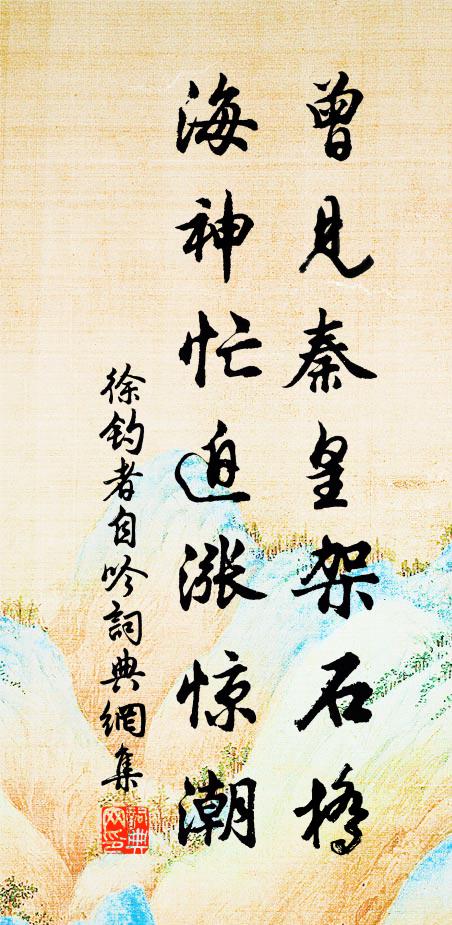 曾見秦皇架石橋
海神忙迫漲惊潮
徐钓者自吟詞典網集
詞典网印